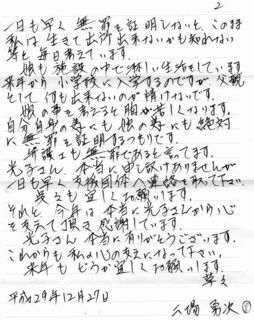 2
一日も早く無罪を証明しないと、このまま
私は生きて出所出来ないかも知れない
等と毎日考えています。
娘も施設の中で淋しい生活をしています。
来年から小学校に入学するのですが父親
として何も出来ないのが情けないです。
娘の事を考えると胸が苦しくなります。
自分自身の為にも娘の為にも絶対
に無罪を証明するつもりです。
弁護士も無罪であると言ってます。
光子さん、本当に申し訳ありませんが
一日も早く支援団体へ連絡を取って下さい。
呉々も宜しくお願います。
それと、今年は本当に光子さんから心
を支えて頂き感謝しています。
光子さん本当に有りがとうございます。
これからも私の心の支えになって下さい。
来年もどうか宜しくお願い致します。
草々
平成29年12月27日
勇次